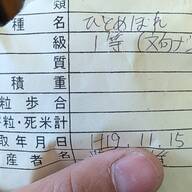 類
種 名 ひとめぼれ
級 1等
質
積 重
粒 歩 合
粒・死米計
取 年 月 日 H19.11.15
産 者 名